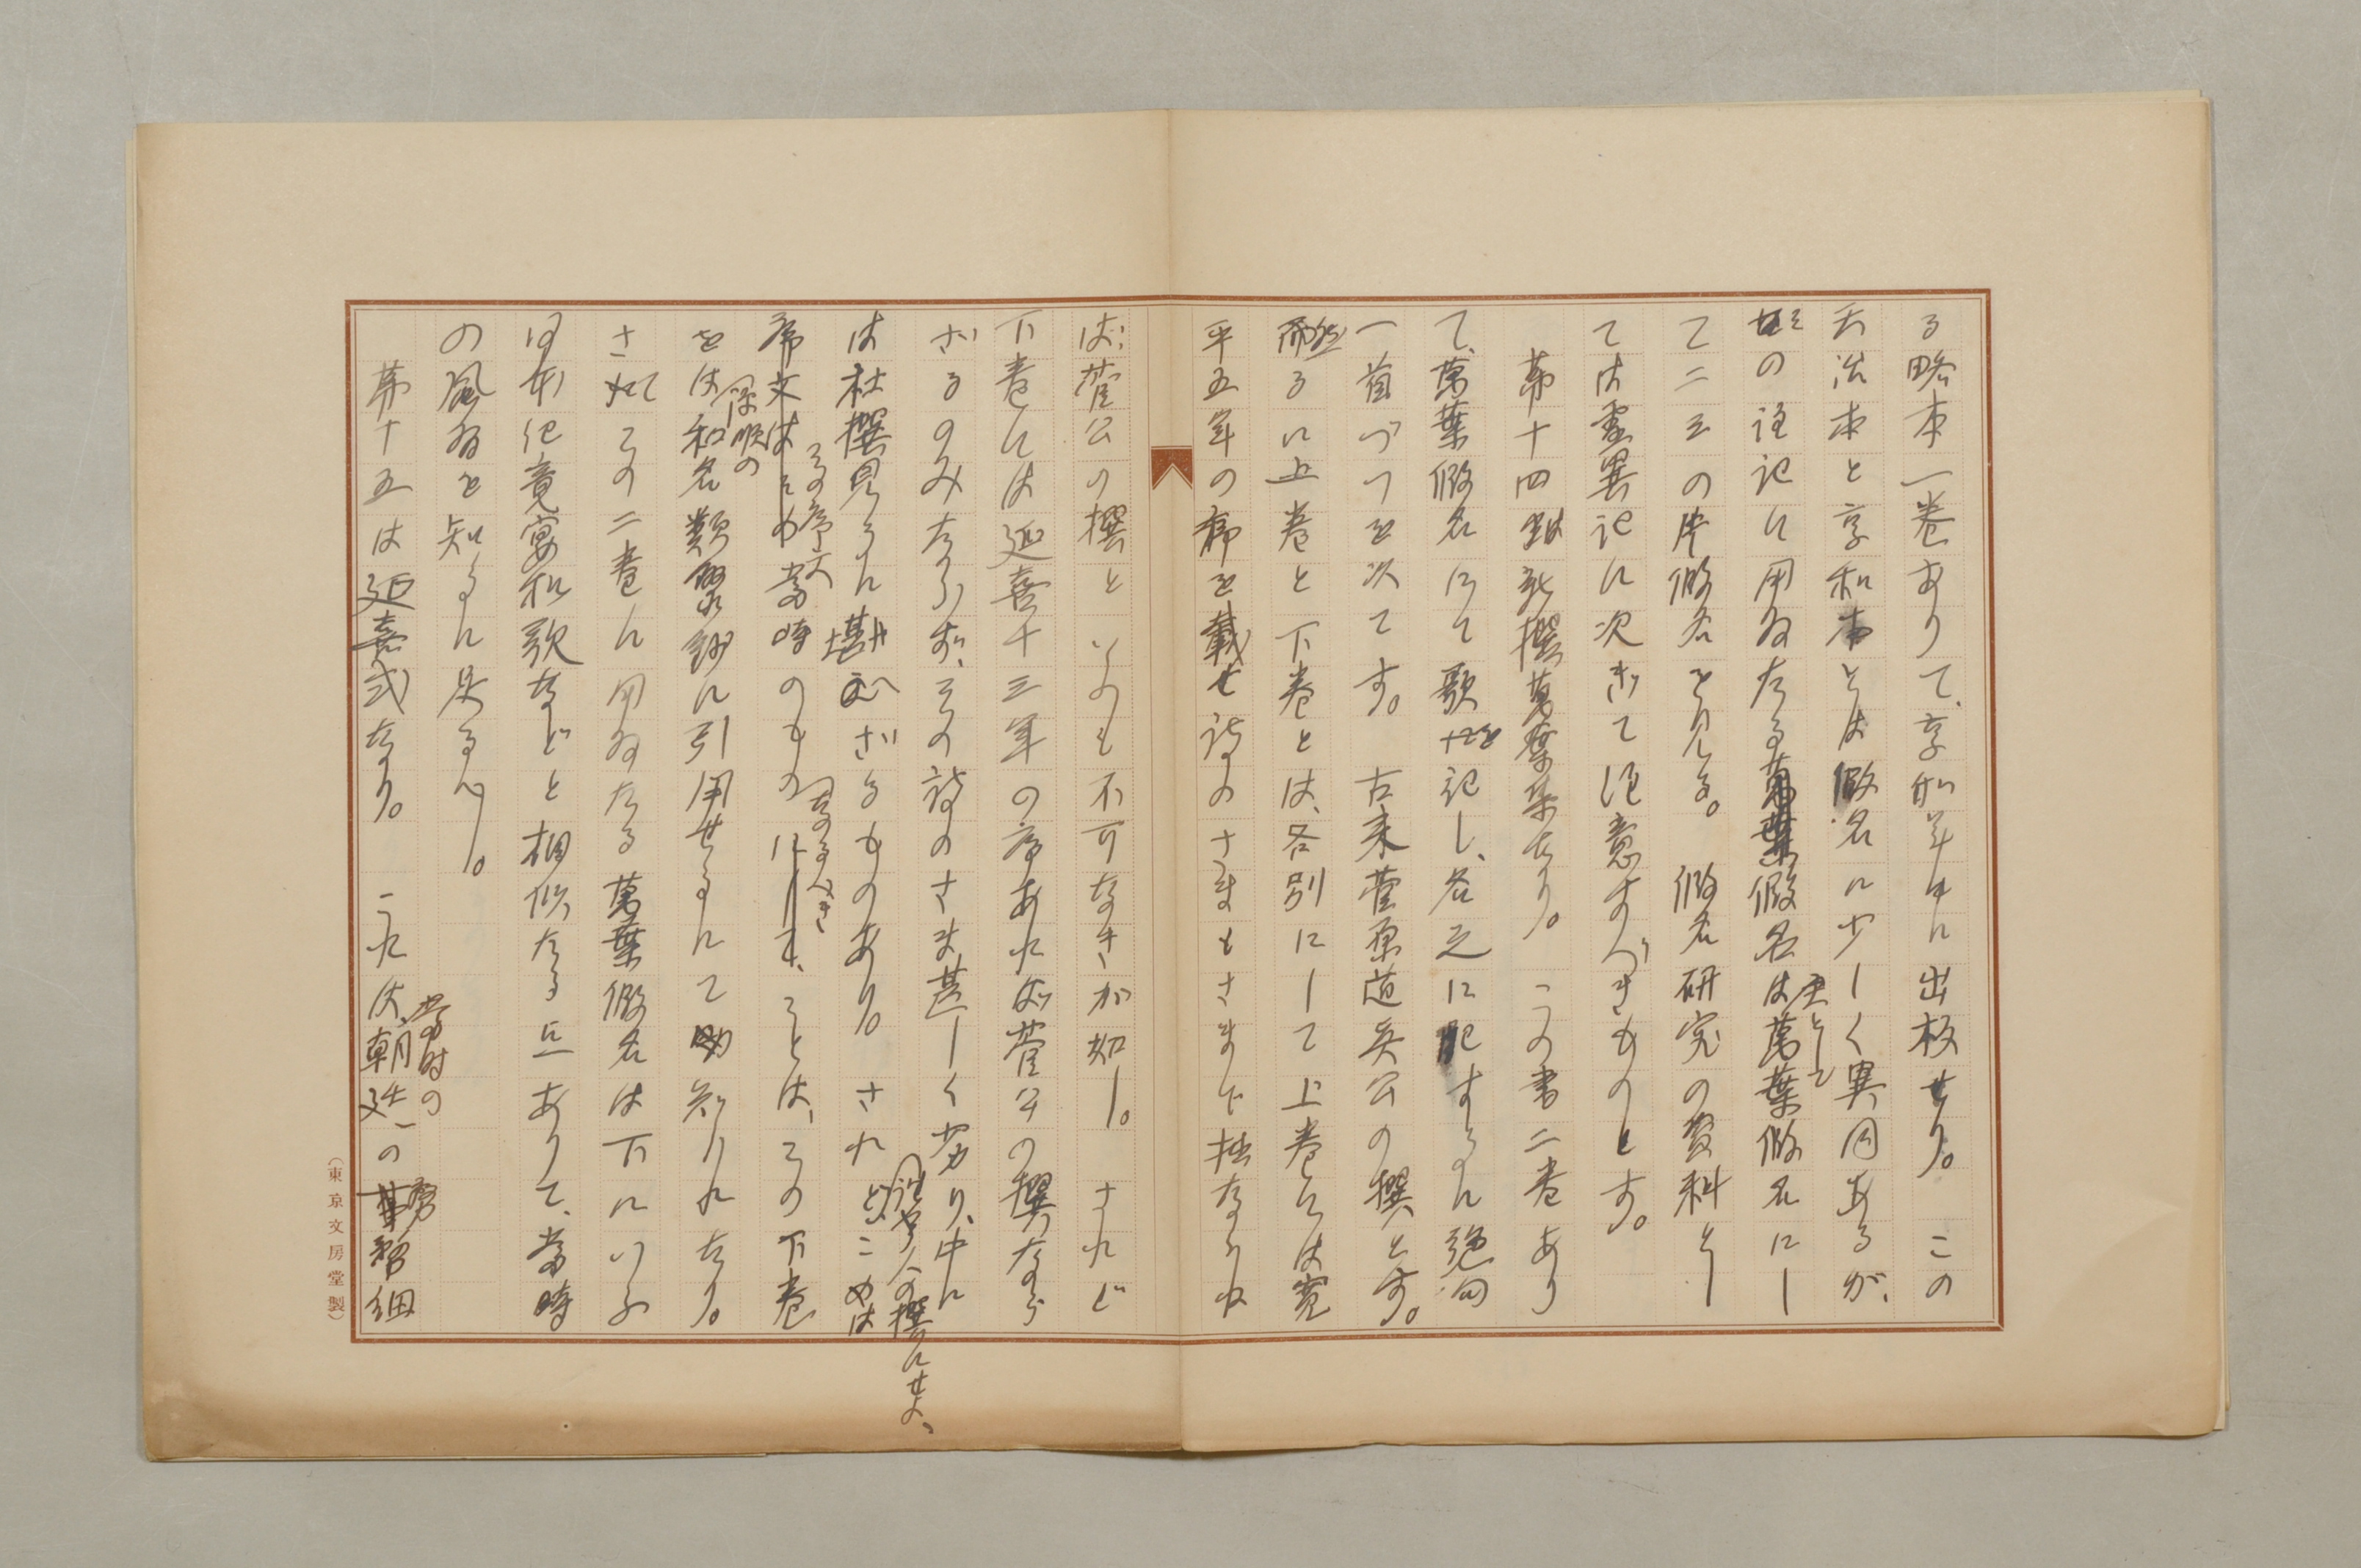 る略本一巻ありて、享和年中に出板せり。この
天治本と享和本とは假名に少しく異同あるが、
その註記に用ゐたる假名は主として萬葉假名にし
て二三の片假名を見る。假名研究の資料とし
ては霊異記に次ぎて注意すべきものとす。
第十四は新撰萬葉集なり。この書二巻あり
て、萬葉假名にて歌を記し、各之に配するに絶句
一首づつを次てす。古来菅原道真公の撰とす。
然るに上巻と下巻とは、各別にして上巻には寛
平五年の序を載せ詩のさまもさまで拙ならね
ば、菅公の撰といふも不可なきが如し。されど
下巻には延喜十三年の序あれば菅公の撰なら
ざるのみならず、その詩のさま甚しく劣り、中に
は杜撰見るに堪へざるものあり。されど、こは
何人の撰にせよ、
その序文
當時のもの
なるべき
ことは、この下巻
をば
源順の
和名類聚鈔に引用せるにて知られたり。
さればこの二巻に用ゐたる萬葉假名は下にいふ
日本紀竟宴和歌などと相似たる点ありて、當時
の風習を知るに足るべし。
第十五は延喜式なり。これは、
當時の
朝廷の
細
(東京文房堂製)